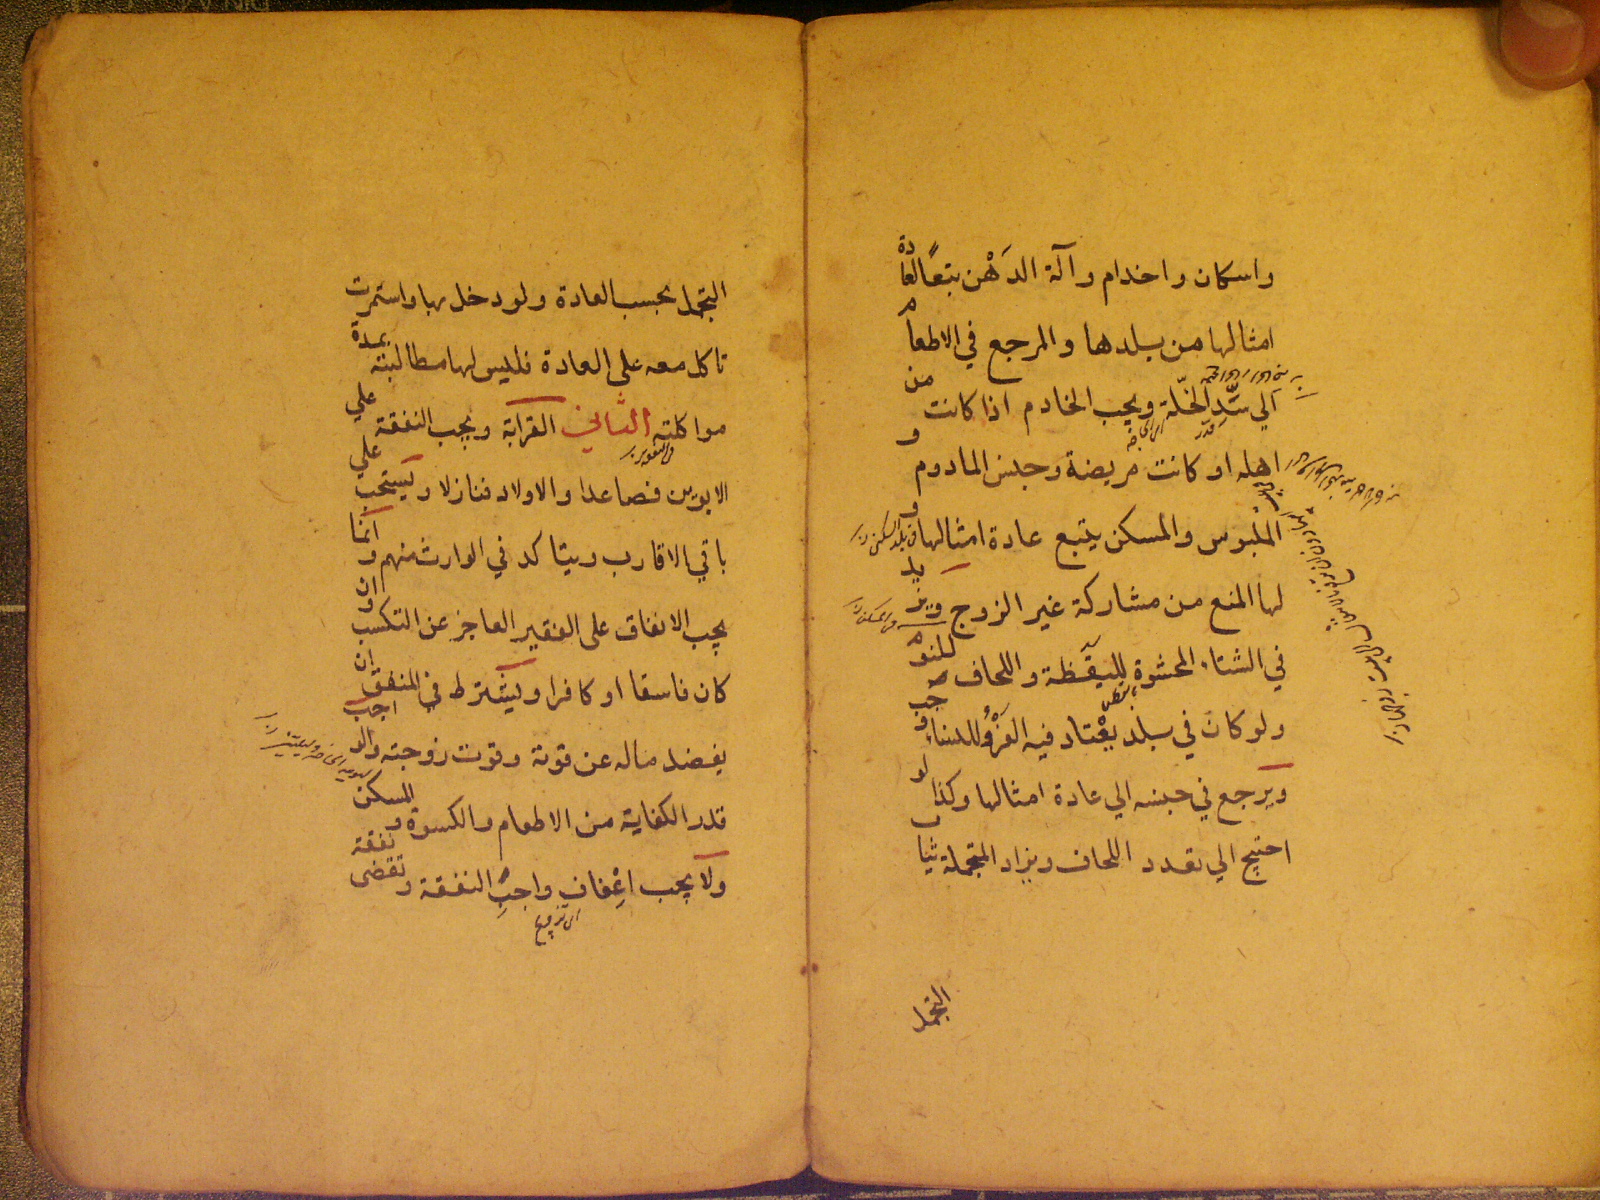 واسكان واخدام وآلة الدَهْن بتعًا لعادة
امثالها من بلدها والمرجع في الاطعام
الي سَدِّ الخَلّة ويجب الخادم اذا كانت من
اهله او كانت مريضة وجنس المادوم و
الملبوس والمسكن يتبع عادة امثالها و
لها المنع من مشاركة غير الزوج ويزيد
في الشتاء المحشوة لليقظة واللحاف للنوم
ولو كان في بلد يعْتاد فيه الفَرْوُ للنساء وجب
ويرجع في جنسه الي عادة امثالها وكذا لو
احتيج الي تعدد اللحاف ويزاد المتجملة ثياب
التجمل
التجمل بحسب العادة ولو دخل بها واستمرت
تاكل معه على العادة فليس لها مطالبته بمدة
مواكلته الثاني القرابة ويجب النفقة علي
الابوين فصاعدا والاولاد فنازلا ويستحب علي
باقي الاقارب ويتاكد في الوارث منهم وانما
يجب الانفاق على الفقير العاجز عن التكسب وان
كان فاسقا او كافرا ويشترط في المنفق ان
يفضل ماله عن قوته وقوت زوجته والواجب
قدر الكفاية من الاطعام والكسوة والمسكن
ولا يجب اعْفاف واجبِ النفقة وتقضى نفقة
اى تزويج